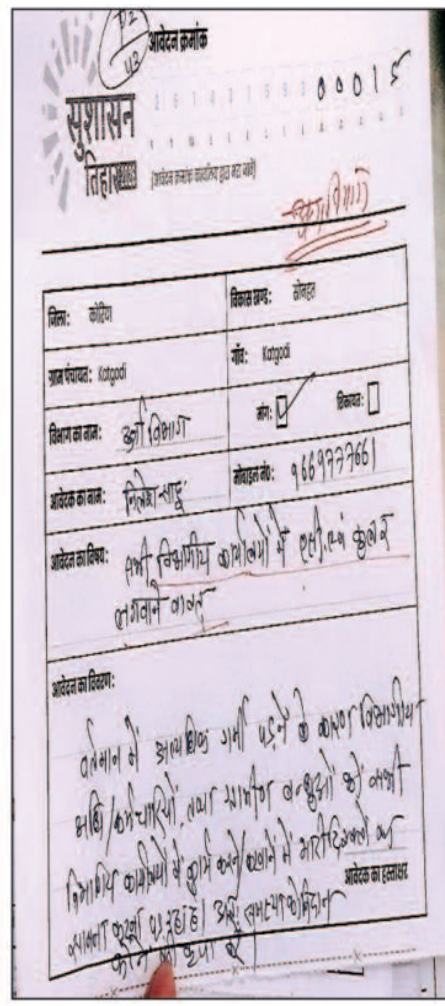 P2
43
आवेदन क्रमांक
सुशासन
तिहार 2025
2 6 1 4 3 1 5 9 3 0 0 0 1
(आवेदन क्रमांक कार्यालय द्वारा भरा जावे)
जिला: कोरिया
विकास खण्ड: सोनहत
ग्राम पंचायत: Katgodi
गाँव: Katgodi
विभाग का नाम: उर्जा विभाग
मांग: शिकायत:
आवेदक का नाम: निलेश साहू
मोबाइल नं०: 9669777661
आवेदन का विषय: सभी विभागीय कार्यालयों में एसी एवं कुलर
लगवाने बाबत्
आवेदन का विवरण:
वर्तमान में अत्यधिक गर्मी पड़ने के कारण विभागीय
अधि/कर्मचारियों, तथा ग्रामीण बन्धुओं को सभी
विभागीय कार्यालयों में कार्य करने/कराने में भारी दिक्कतों का
आवेदक का हस्ताक्षर
सामना करना पड़ रहा है। अतः समस्या को निदान
करने की कृपा करें।